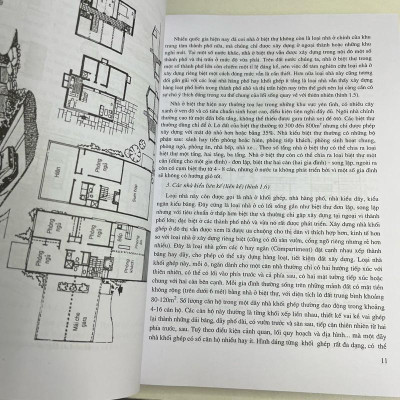 Nhiều quốc gia hiện nay đã coi nhà ở biệt thự không còn là loại nhà ở chính của khu
trung tâm thành phố nữa, mà chúng chỉ được xây dựng ở ngoại thành hoặc những khu
ngôi mát. Tại một số nước khác, nhà ở biệt thự vẫn được xây dựng trong nội đô một số
thành phố và thị trấn ở mức độ vừa phải. Trên đất nước chúng ta, nhà ở biệt thự trong
một số thành phố lớn còn chiếm một tỉ lệ đáng kể, nên việc để tâm nghiên cứu loại nhà ở
xây dựng riêng biệt một cách đúng mức vẫn là cần thiết. Hơn nữa loại nhà này cũng tương
đối gần gũi với các loại nhà hàng phố kiểu ghép ít tầng là loại nhà vẫn thấy xây dựng
hàng loạt phổ biến trong thành phố và thị trấn hiện nay trên thế giới nên nó cũng cần có
sự chú ý thích đáng trong xu thế đồng đều lối sống quay về với thiên nhiên (hình 1.5).
Nhà ở biệt thự hiện nay thường tọa lạc trong những khu vực yên tĩnh, có nhiều cây
xanh ở ven đô và có tiêu chuẩn sinh hoạt cao, điều kiện tiện nghi đầy đủ. Ngôi nhà chính
thường cao từ một đến bốn tầng, không thể thiếu được gara (nhà xe) để ôtô. Các biệt thự
thường dùng chỉ để ở. Lô đất của biệt thự thường từ 300 đến 800m² nhưng chỉ được phép
xây dựng với mật độ nhỏ hơn hoặc bằng 35%. Nhà kiểu biệt thự thường có những bộ
phận sau: sảnh hay tiền phòng hoặc hiên, phòng tiếp khách, phòng sinh hoạt chung,
phòng ngủ, phòng ăn, nhà bếp, nhà xe... Theo số tầng nhà ở biệt thự có thể chia ra loại
biệt thự một tầng, hai tầng, ba tầng. Nhà ở biệt thự còn có thể chia ra loại biệt thự một
căn (dùng cho một gia đình) - đơn lập, biệt thự hai căn (hai gia đình) - song lập, ngoài ra
còn có cụm biệt thự từ 4 - 8 căn, nhưng ở nước ta không phát triển bởi vì một số gia đình
ở không có hướng gió tốt.
3. Các nhà kiểu liên kế (liền kề) (hình 1.6):
Loại nhà này còn được gọi là nhà ở khối ghép, nhà hàng phố, nhà kiểu dãy, kiểu
ngăn kiểu băng. Đây cũng là loại nhà ở có lối sống gần như biệt thự đơn lập, song lập
nhưng với tiêu chuẩn ở thấp hơn biệt thự và thường chỉ gặp xây dựng tại ngoại vi thành
phố lớn; đặc biệt ở các thành phố nhỏ và vừa nó rất được phát triển. Xây dựng nhà khối
ghép ở đô thị vẫn được xem là được ưa chuộng cho thị dân vì thích hợp hơn, kinh tế hơn
so với loại nhà ở xây dựng riêng biệt (cũng có đủ sân vườn, cổng ngõ riêng nhưng rẻ hơn
nhiều). Đây là loại nhà gồm các ô hay ngăn (Compartiment) đặt cạnh nhau xếp thành
băng hay dãy, cho phép có thể xây dựng hàng loạt, tiết kiệm đất xây dựng. Loại nhà
khối ghép này, mỗi ô, ngăn dành cho một căn nhà thường chỉ có hai hướng tiếp xúc với
thiên nhiên, có thể có lối vào phía trước và cả phía sau, có hai mặt tường tiếp xúc hoặc
chung với hai căn bên cạnh. Mỗi gia đình thường sống trên những mảnh đất có mặt tiền
không rộng (trên dưới 6 mét) bằng nhà ở biệt thự, với diện tích lô đất trung bình khoảng
80-120m². Số lượng căn hộ trong một dãy nhà khối ghép thường dao động trong khoảng
4-16 căn hộ. Các căn hộ này thường là từng khối xếp liền nhau, thiết kế vài kế vài ghép
lại thành những dải băng, dãy phố dài, có vườn trước và sân sau, tiếp cận thiên nhiên từ hai
phía trước, sau. Tuỳ theo điều kiện cảnh quan, lối quy hoạch và địa hình... mà một dãy
nhà khối ghép có số căn hộ nhiều hay ít. Hình dáng từng khối ghép rất đa dạng, có thể
11
Phòng ngủ
Phòng ngủ
Phòng ngủ
Phòng ngủ
Mái che gara